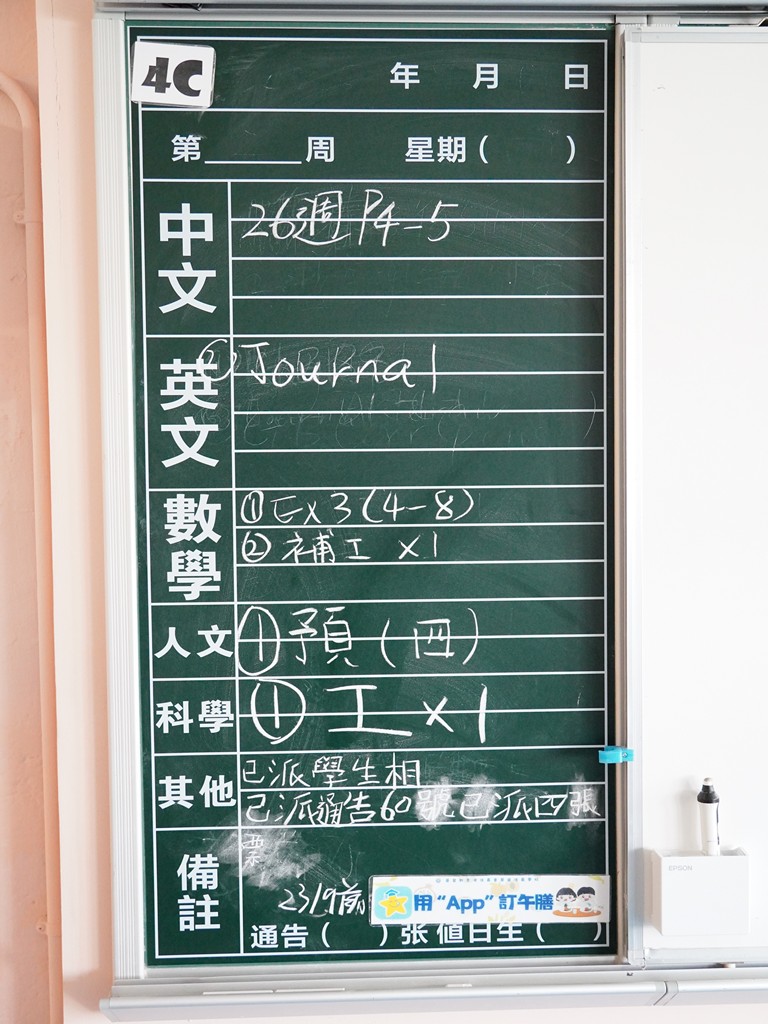 4C
年 月 日
第______周 星期( )
中文
26週 P4-5
英文
Journal
數學
① Ex3(4-8)
② 補工 x1
人文
① 預(四)
科學
① 工x1
其他
已派學生相
已派通告60號已派四張
票
備註
23/9前
用“App”訂午膳
通告( )张 值日生( )
EPSON